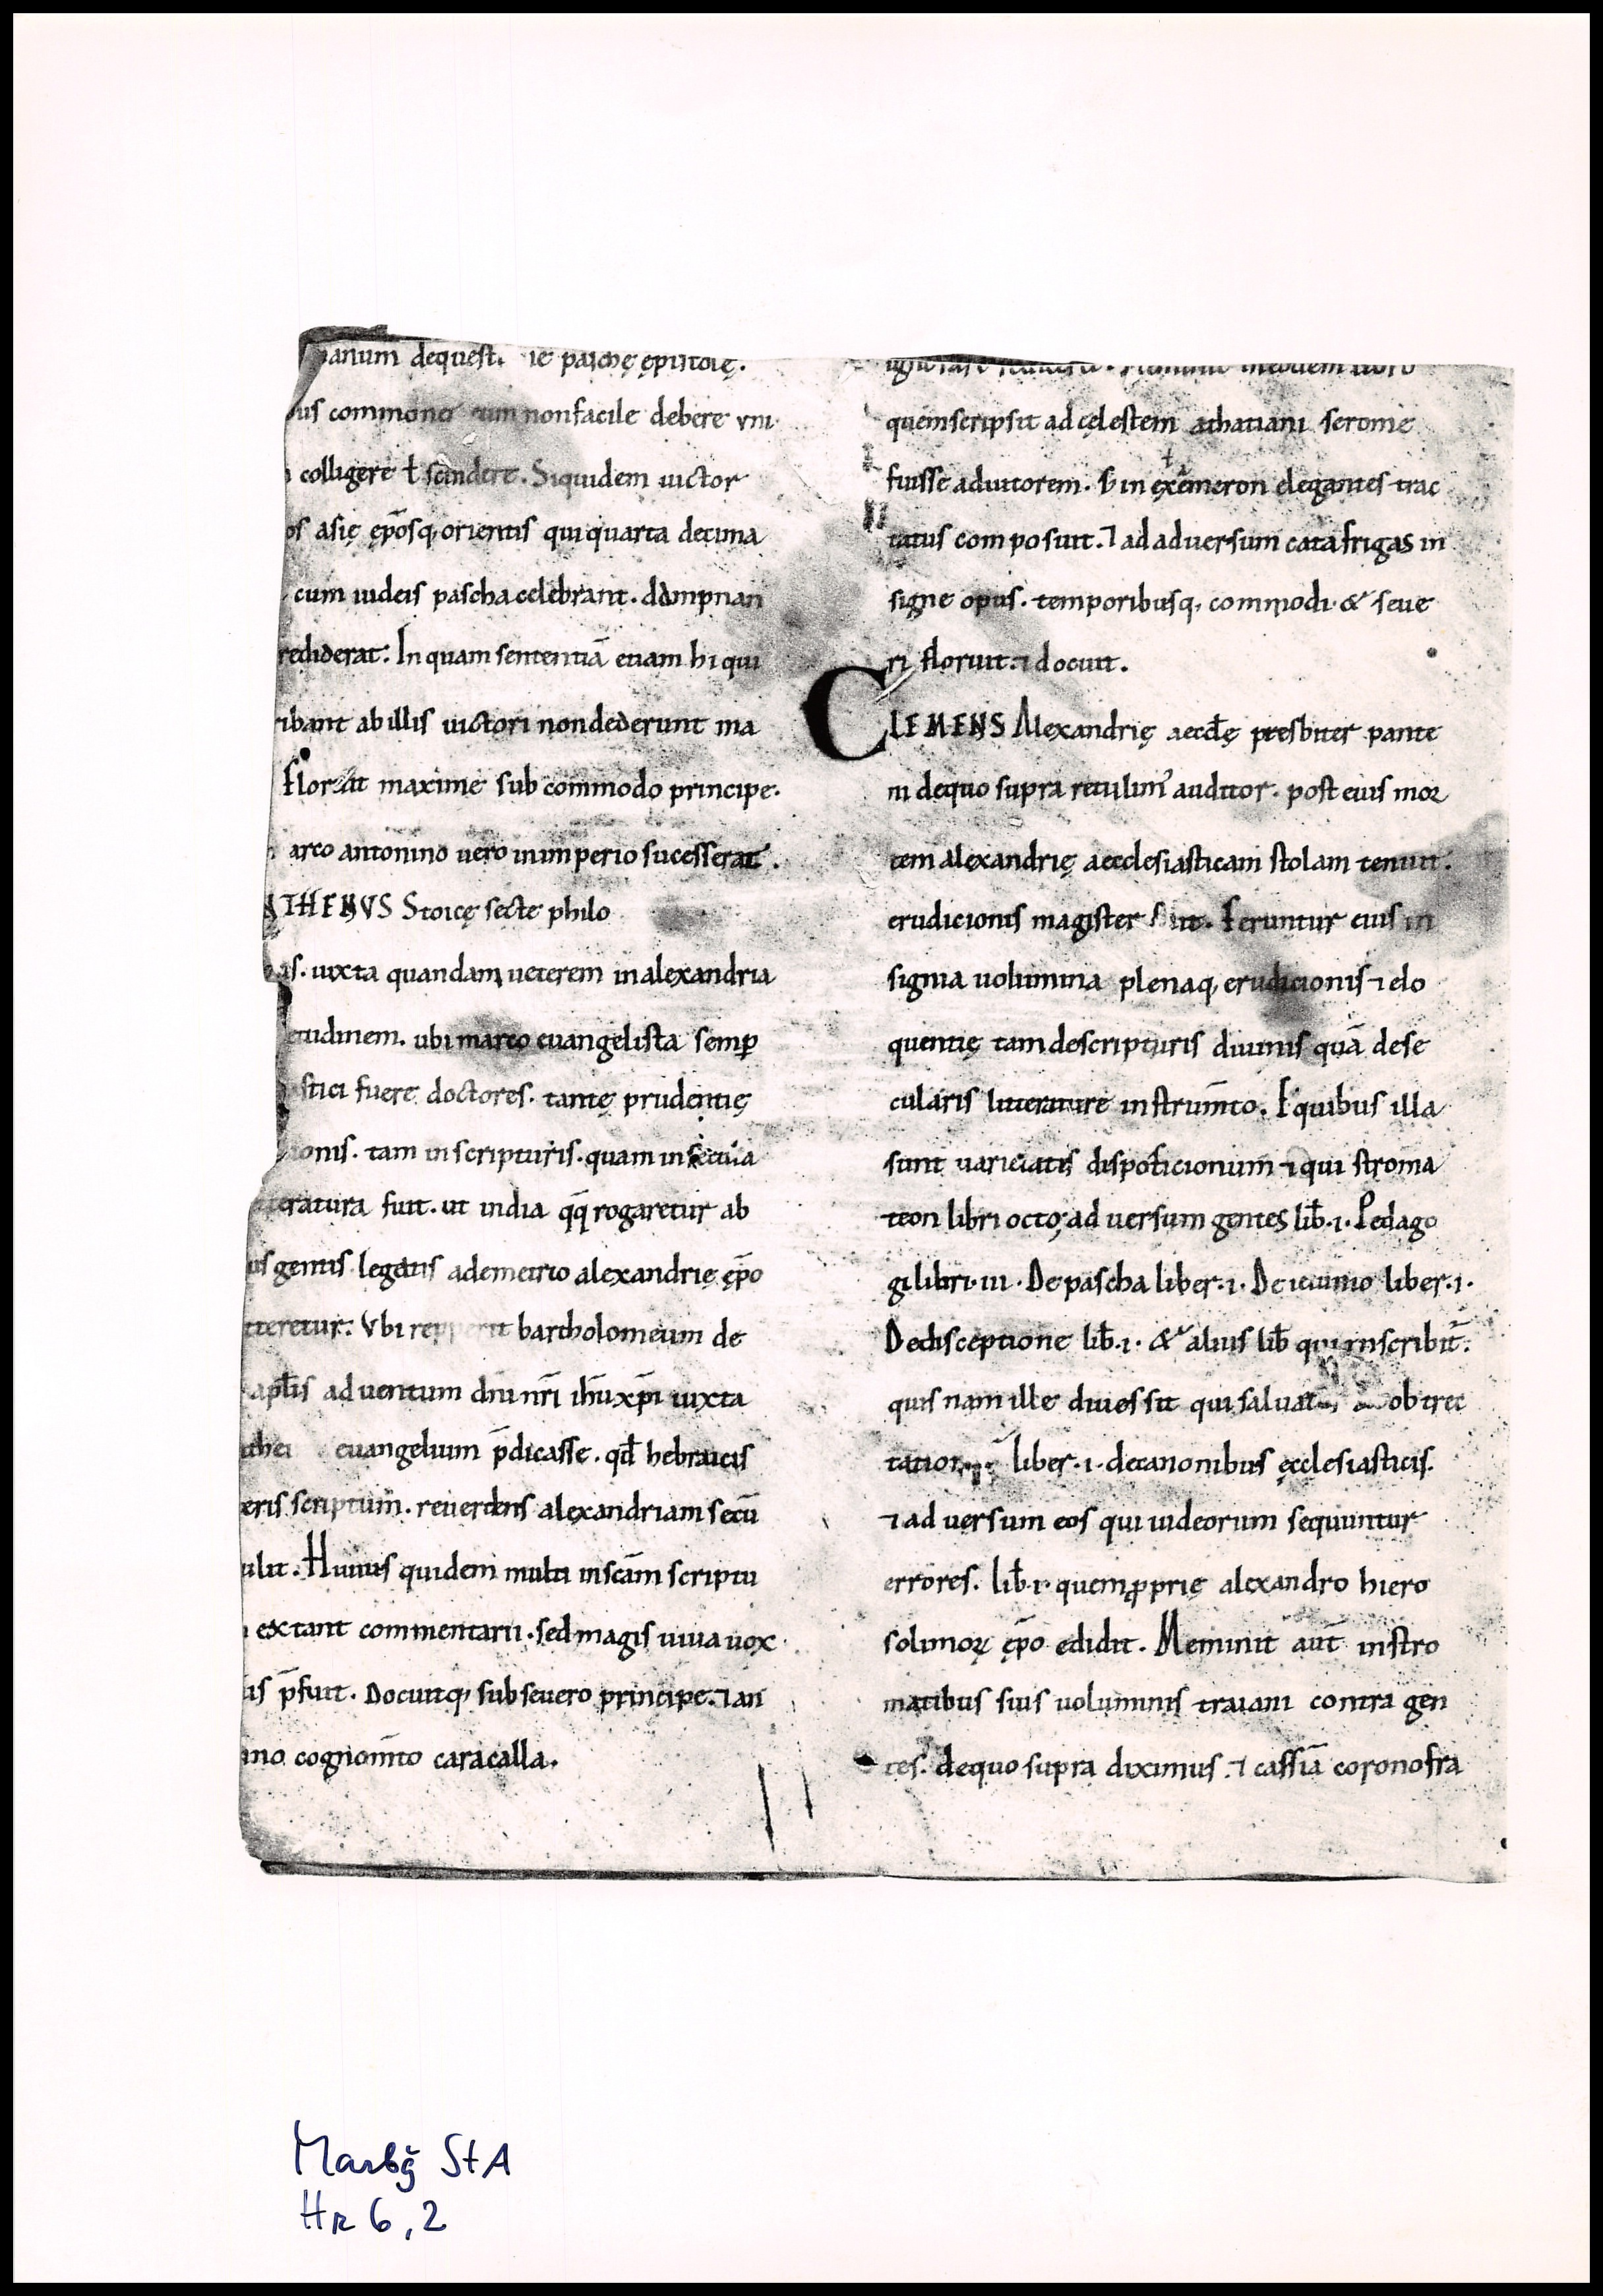 anum dequest ie paschę ępistolę.
us commone eum nonfacile debere vni
colligere ł scindere. Siquidem uictor
os asię ep̄osq; orientis qui quarta decima
cum iudeis pascha celebrant. dampnan
rediderat: In quam sententiā etiam hi qui
ibant ab illis uictori nondederunt ma
Floruit maxime sub commodo principe.
arco antonino uero inimperio sucesserat.
ATHENVS Stoicę secte philo
as. iuxta quandam ueterem inalexandria
etudinem. ubi marco euangelista semp̱
stici fuere doctores. tantę prudentię
ionis. tam in scripturis. quam in secula
teratura fuit. ut india q̄q̄ rogaretur ab
us gentis legatis ademetrio alexandrię ęp̄o
tteretur: Vbi repperit bartholomeum de
apłis aduentum dn̄i nr̄i ih̄u xp̄i iuxta
thei euangelium p̄dicasse. qđ hebraicis
eris scriptum. reuertens alexandriam secū
ulit. Huius quidem multi in scām scriptu
extant commentarii. sed magis uiua uox
is p̄fuit. Docuitq; sub seuero principe. ⁊ an
ino cognom̄to caracalla.
quem scripsit ad cęlestem athatiani serome
fuisse adiutorem. Ꝟ in exēmeron elegantes trac
tatus composuit. ⁊ ad aduersum catafrigas in
signe opus. temporibusq; commodi & seue
ri floruit. ⁊ docuit.
CLEMENS Alexandrię aecłę presbiter pante
ni dequo supra retulimꝰ auditor. post eius moꝛ
tem alexandrię aecclesiasticam stolam tenuit.
erudicionis magister uit. Feruntur eius in
signia uolumina plenaq; erudicionis ⁊ elo
quentię tam descripturis diuinis quā dese
cularis litterature instrum̄to. Equibus illa
sunt uarietatis dispoticionum ⁊ qui stroma
teon libri octo; ad uersum gentes lib̄. ı. Pedago
gi libri. iii. De pascha liber. ı. De ieiunio liber. ı.
Dedisceptione lib̄. ı. & alius lib̄ qui inscribit᷑:
quis nam ille diues sit qui saluat obtrec
tation liber. ı. decanonibus ęcclesiasticis.
⁊ ad uersum eos qui iudeorum sequuntur
errores. lib̄. ı. quem ꝓprię alexandro hiero
solimoꝝ ęp̄o edidit. Meminit aut̄ in stro
matibus suis uoluminis traiani contra gen
tes. dequo supra diximus. ⁊ cassiā coronofra
Marbg StA
Hr 6,2